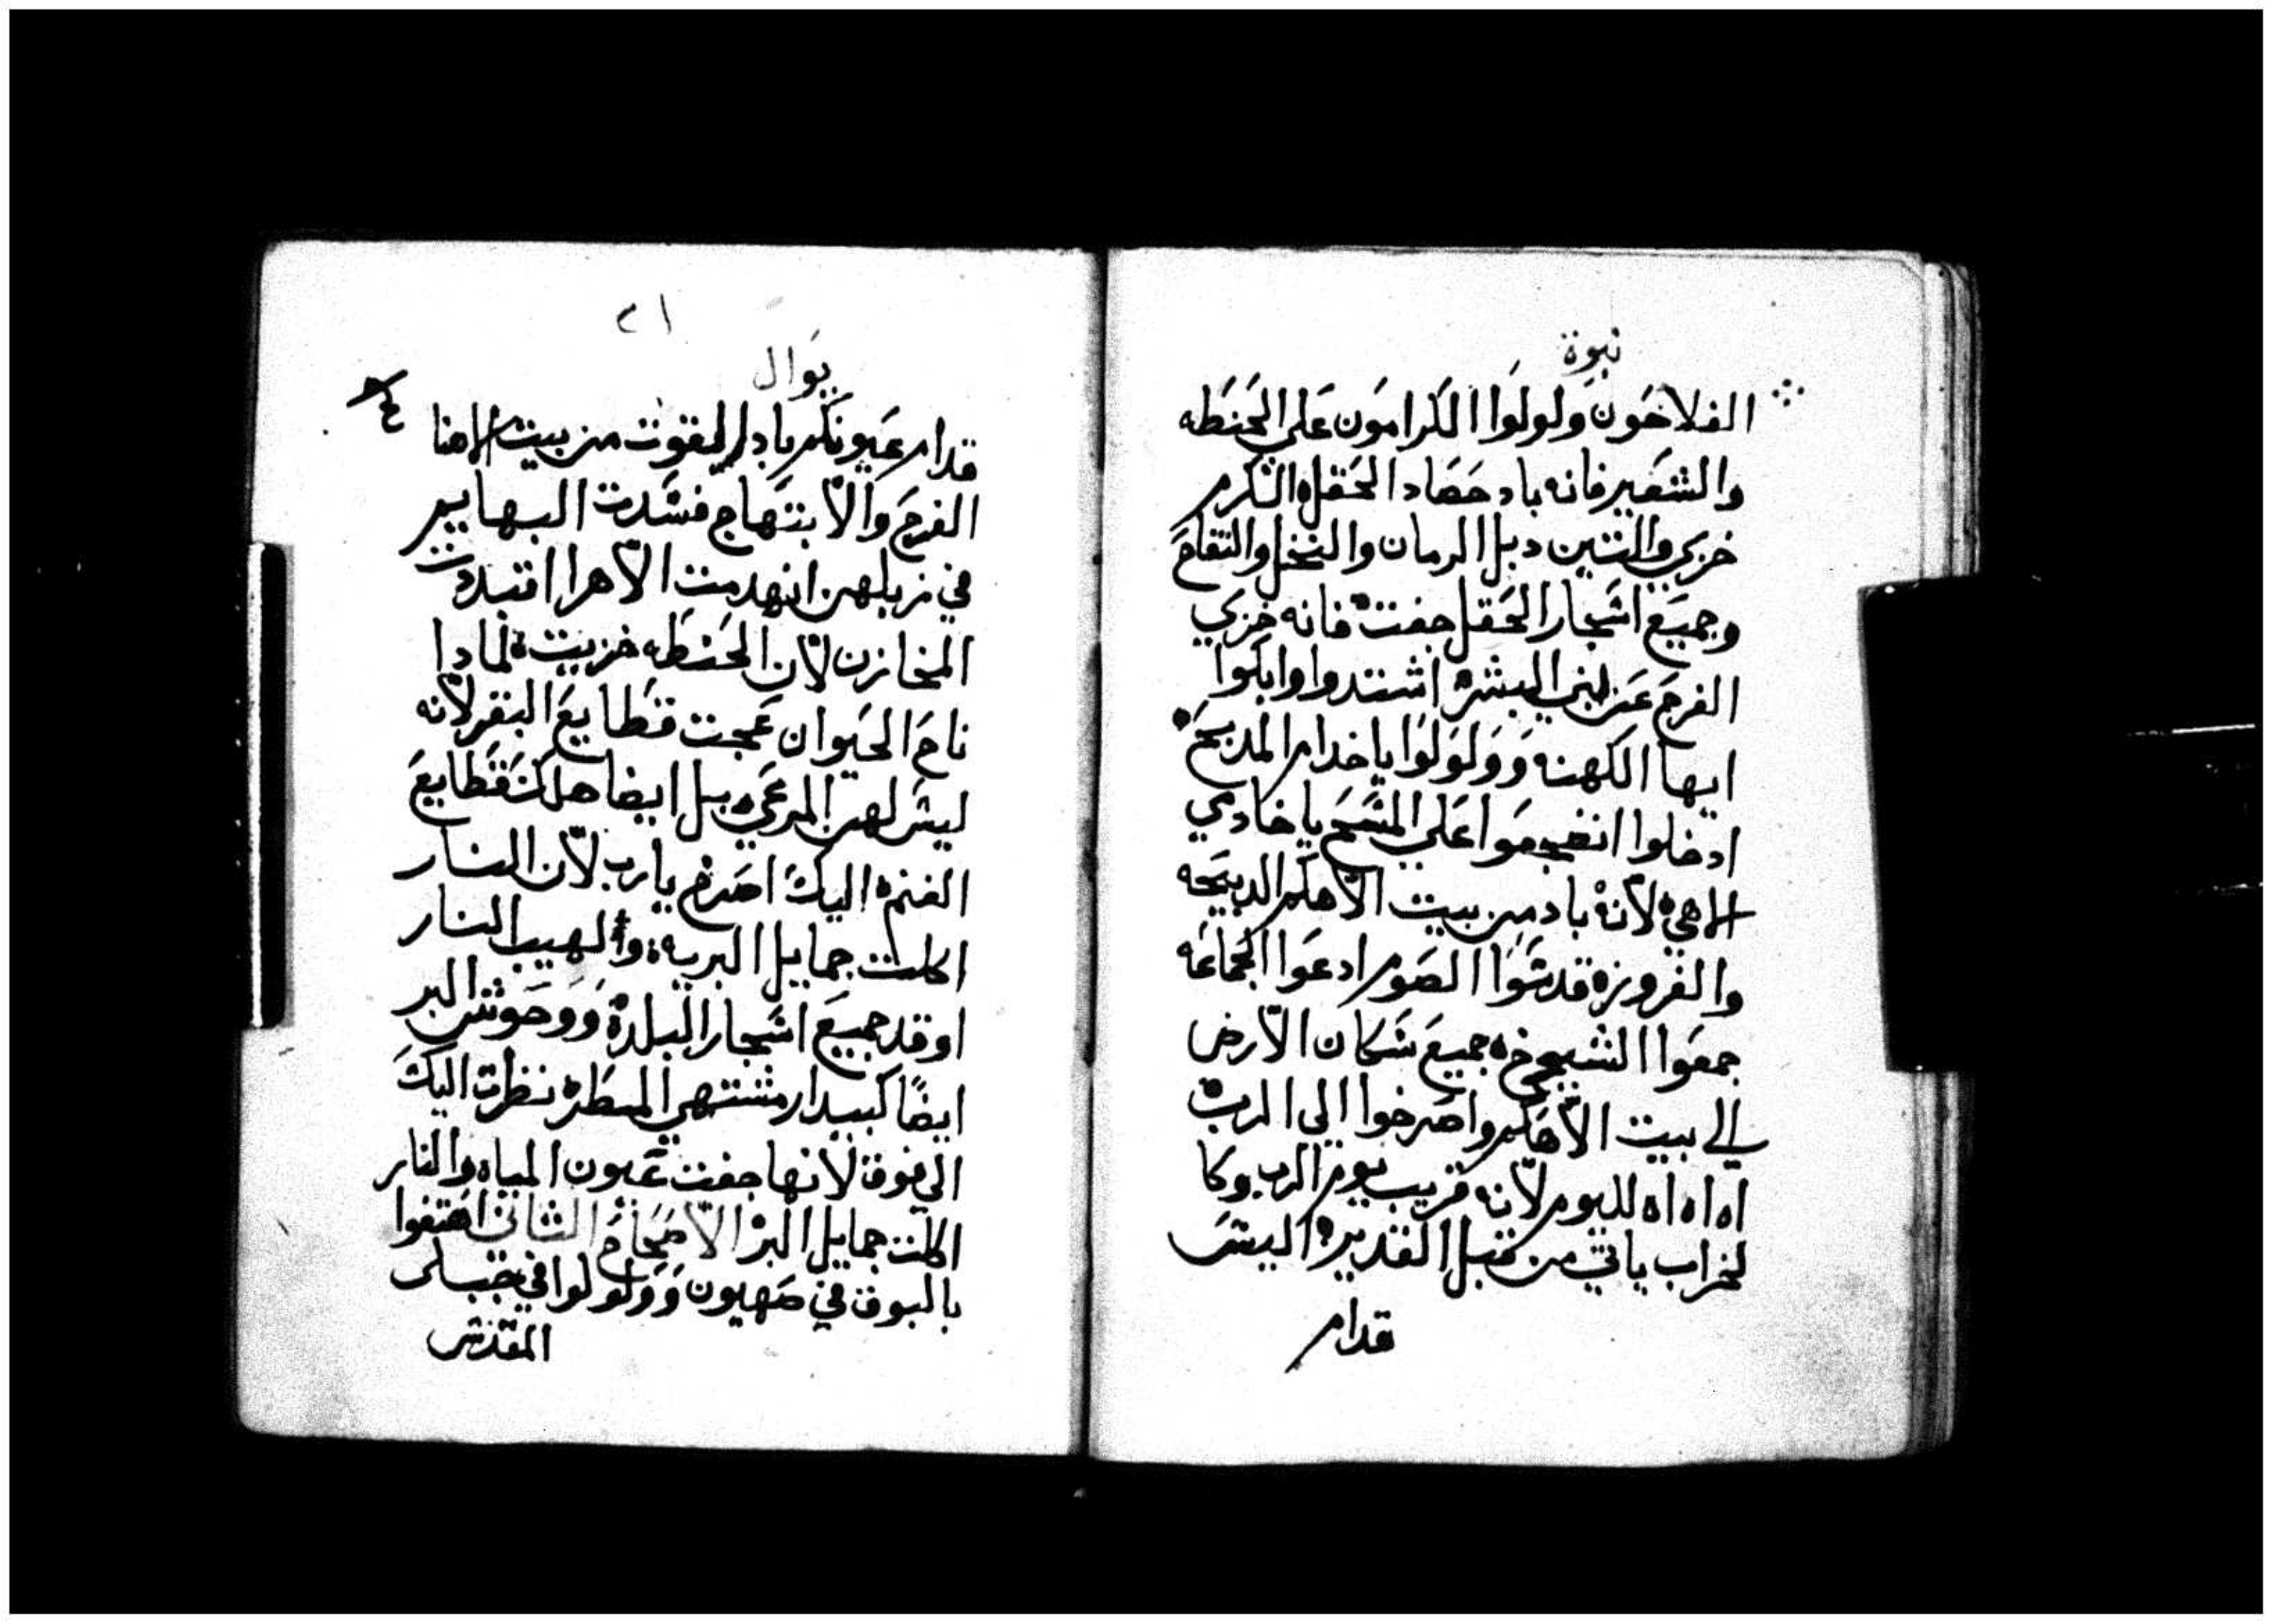 نبوة
الفلاحون ولولوا الكرامون علي الحنطه
والشعير فانه باد حصاد الحقل ه الكرم
خزي والتين دبل الرمان والنخل والتفاح
وجميع اشجار الحقل جفت ه فانه خزي
الفرح عن بني البشر ه اشتدوا وابكوا
ايها الكهنه وولولوا يا خدام المدبح ه
ادخلوا انضجعوا علي المسح يا خادمي
الاهي ه لانه باد من بيت الاهكم الدبيحه
والفروزه قدسوا الصوم ادعوا الجماعه
جمعوا الشيوخ ه جميع سكان الارض
الي بيت الاهكم واصرخوا الي الرب ه
اه اه اه لليوم لانه قريب يوم الرب وكا
لخراب ياتي من قبل القدير ه اليس
قدام
٢١
يوال
قدام عيونكم باد القوت من بيت الاهنا
الفرح والابتهاج فسدت البهايم
في زبلهن انهدمت الاهرا افتبددت
المخازن لان الحنطه خزيت ه لمادا
ناح الحيوان عجت قطايع البقر لانه
ليس لهن المرعي ه بل ايضا هلكت قطايع
الغنم ه اليك اصرخ يا رب لان النار
اكلت جمايل البريه ه والهيب النار
اوقد جميع اشجار البلده ووحوش البر
ايضا كبيدار مشتهي المطر ه نظرت اليك
الي فوق لانها جفت عيون المياه والنار
اكلت جمايل البر الاصحاح الثاني اهتفوا
بالبوق في صهيون وولولوا في جبل
المقدس